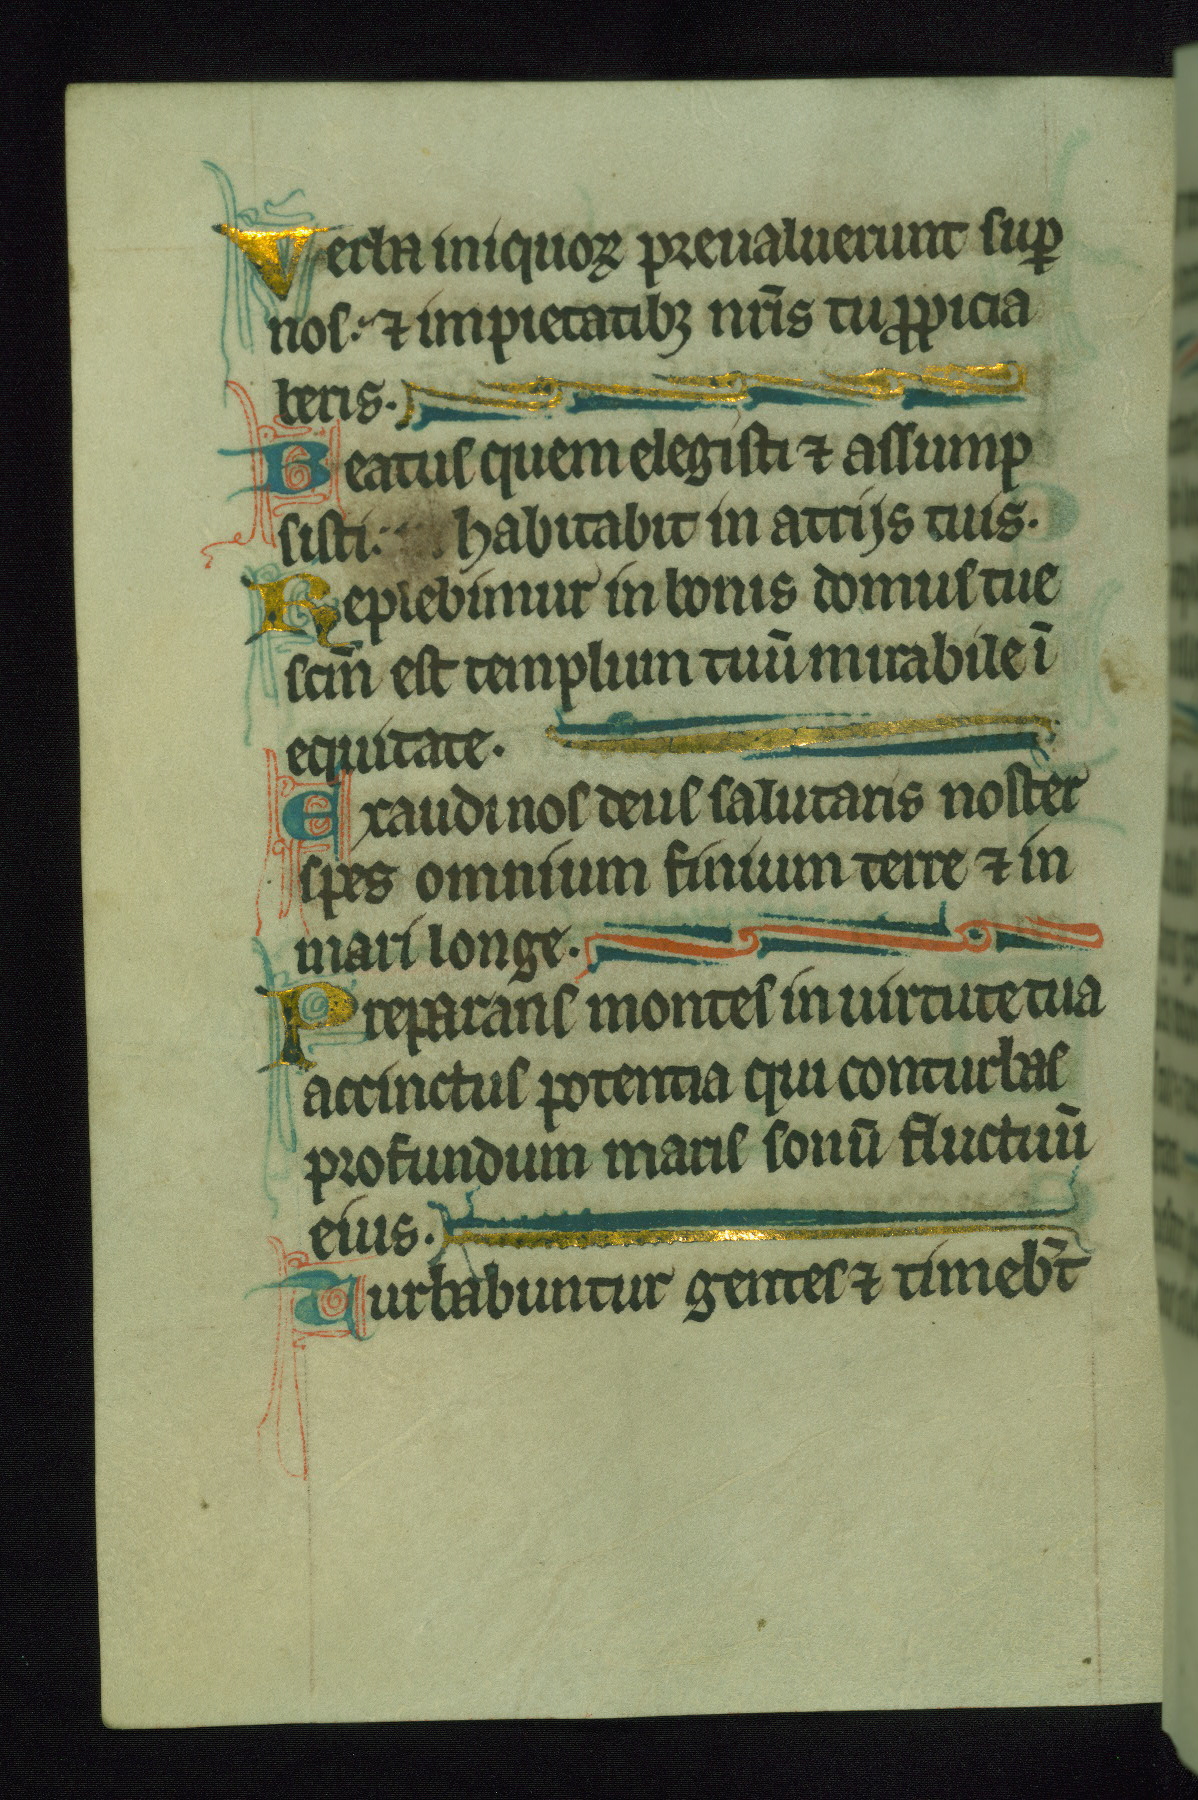 Verba iniquoꝝ preualuerunt suꝑ
nos: ⁊ impietatibꝫ nr̃is tu ꝓpicia
beris.
Beatus quem elegisti ⁊ assump
sisti: habitabit in atrijs tuis.
Replebimur in bonis domus tue
scm̄ est templum tuū mirabile ī
equitate.
Exaudi nos deus salutaris noster
spes omnium finium terre ⁊ in
mari longe.
Preparans montes in uirtute tua
accinctus potentia qui conturbas
profundum maris sonū fluctuū
eius.
Turbabuntur gentes ⁊ timeb̄t